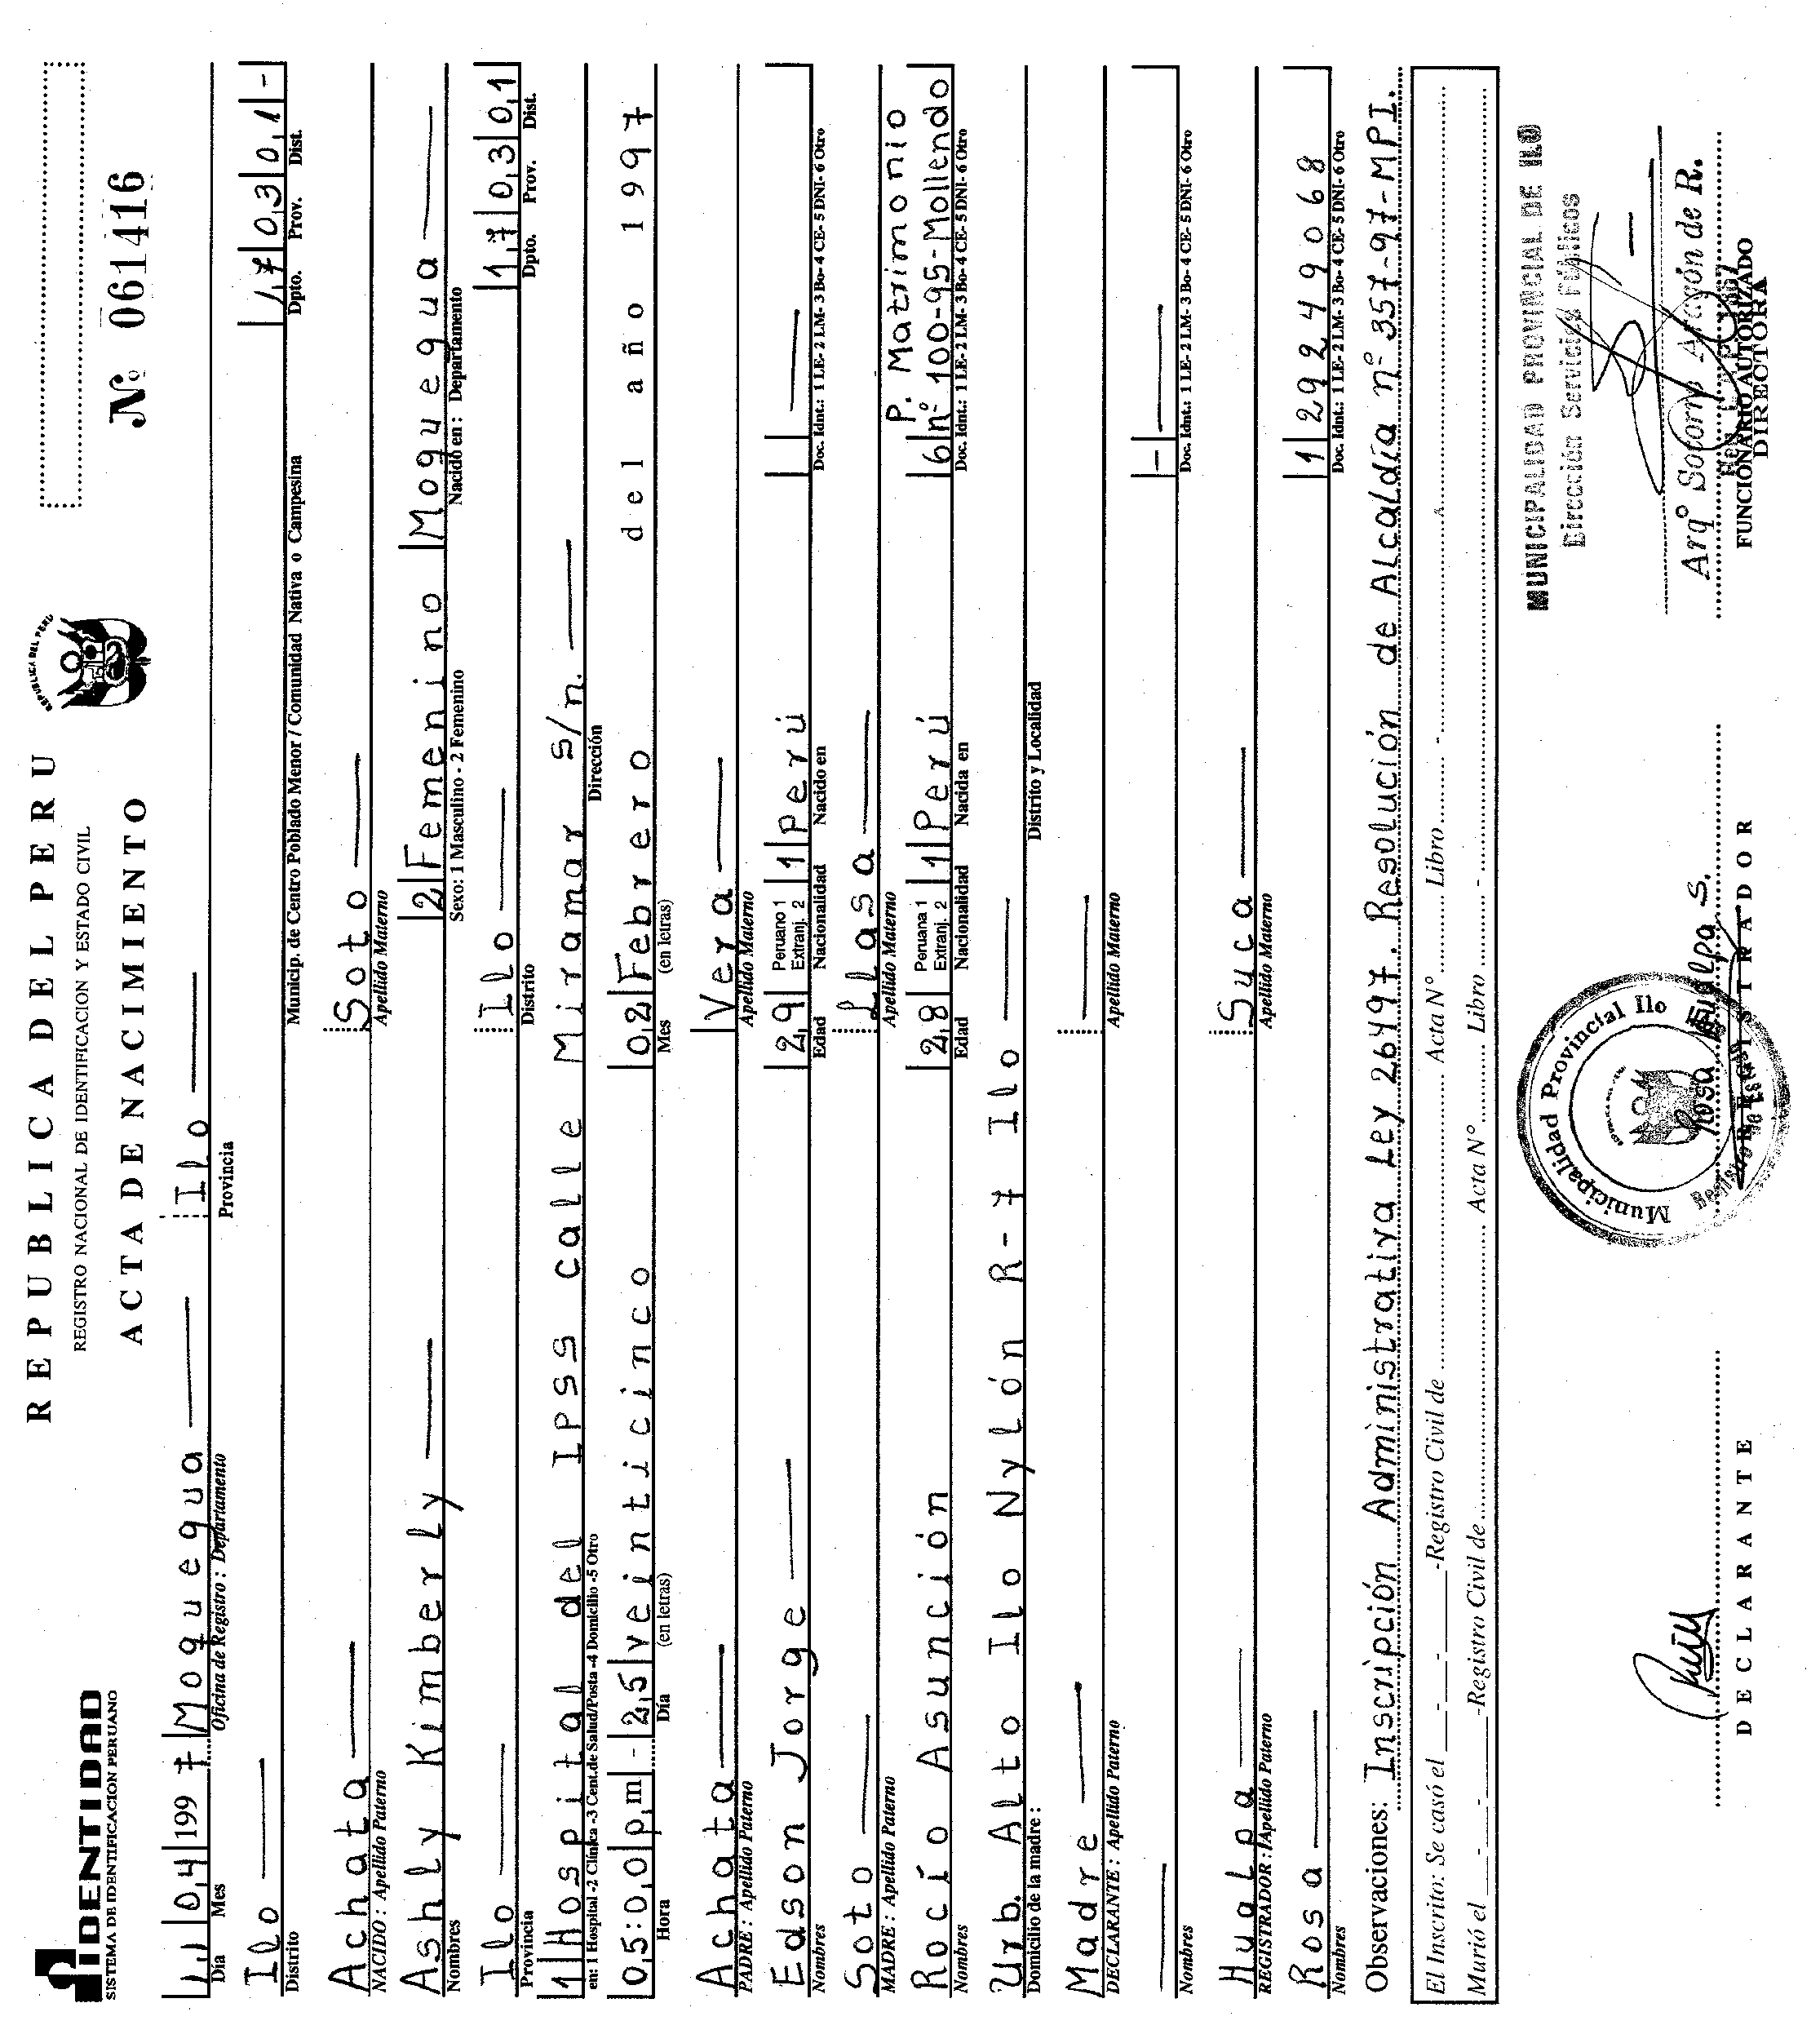 REPUBLICA DEL PERU
REGISTRO NACIONAL DE IDENTIFICACION Y ESTADO CIVIL
ACTA DE NACIMIENTO
IDENTIDAD
SISTEMA DE IDENTIFICACION PERUANO
REPUBLICA DEL PERU
Nº 061416
11 04 1997 Moquegua Ilo
Día Mes Oficina de Registro : Departamento Provincia
Ilo 17 03 01 -
Distrito Municip. de Centro Poblado Menor / Comunidad Nativa o Campesina Dpto. Prov. Dist.
Achata Soto
NACIDO : Apellido Paterno Apellido Materno
Ashly Kimberly 2 Femenino Moquegua
Nombres Sexo: 1 Masculino - 2 Femenino Nacido en : Departamento
Ilo Ilo 17 03 01
Provincia Distrito Dpto. Prov. Dist.
1 Hospital del IPSS calle Miramar s/n.
en: 1 Hospital -2 Clínica -3 Cent.de Salud/Posta -4 Domicilio -5 Otro Dirección
05:00 pm - 25 veinticinco 02 Febrero del año 1997
Hora Día (en letras) Mes (en letras)
Achata Vera
PADRE : Apellido Paterno Apellido Materno
Edson Jorge 29 Peruano 1 Extranj. 2 1 Perú
Nombres Edad Nacionalidad Nacido en Doc. Idnt.: 1 LE- 2 LM- 3 Bo- 4 CE- 5 DNI- 6 Otro
Soto Llasa P. Matrimonio
MADRE : Apellido Paterno Apellido Materno
Rocío Asunción 28 Peruana 1 Extranj. 2 1 Perú 6 nº 100-95-Mollendo
Nombres Edad Nacionalidad Nacida en Doc. Idnt.: 1 LE- 2 LM- 3 Bo- 4 CE- 5 DNI- 6 Otro
Urb. Alto Ilo Nylón R-7 Ilo
Domicilio de la madre : Distrito y Localidad
Madre
DECLARANTE : Apellido Paterno Apellido Materno
-
Nombres Doc. Idnt.: 1 LE- 2 LM- 3 Bo- 4 CE- 5 DNI- 6 Otro
Hualpa Suca
REGISTRADOR : Apellido Paterno Apellido Materno
Rosa 1 29249068
Nombres Doc. Idnt.: 1 LE- 2 LM- 3 Bo- 4 CE- 5 DNI- 6 Otro
Observaciones: Inscripción Administrativa Ley 26497. Resolución de Alcaldía nº 357-97-MPI.
El Inscrito: Se casó el -Registro Civil de Acta Nº Libro
Murió el -Registro Civil de Acta Nº Libro
MUNICIPALIDAD PROVINCIAL DE ILO
Dirección Servicios Públicos
Municipalidad Provincial Ilo
Rosa Hualpa S.
Arqº Socorro Aragón de R.
DECLARANTE REGISTRADOR FUNCIONARIO AUTORIZADO
DIRECTORA